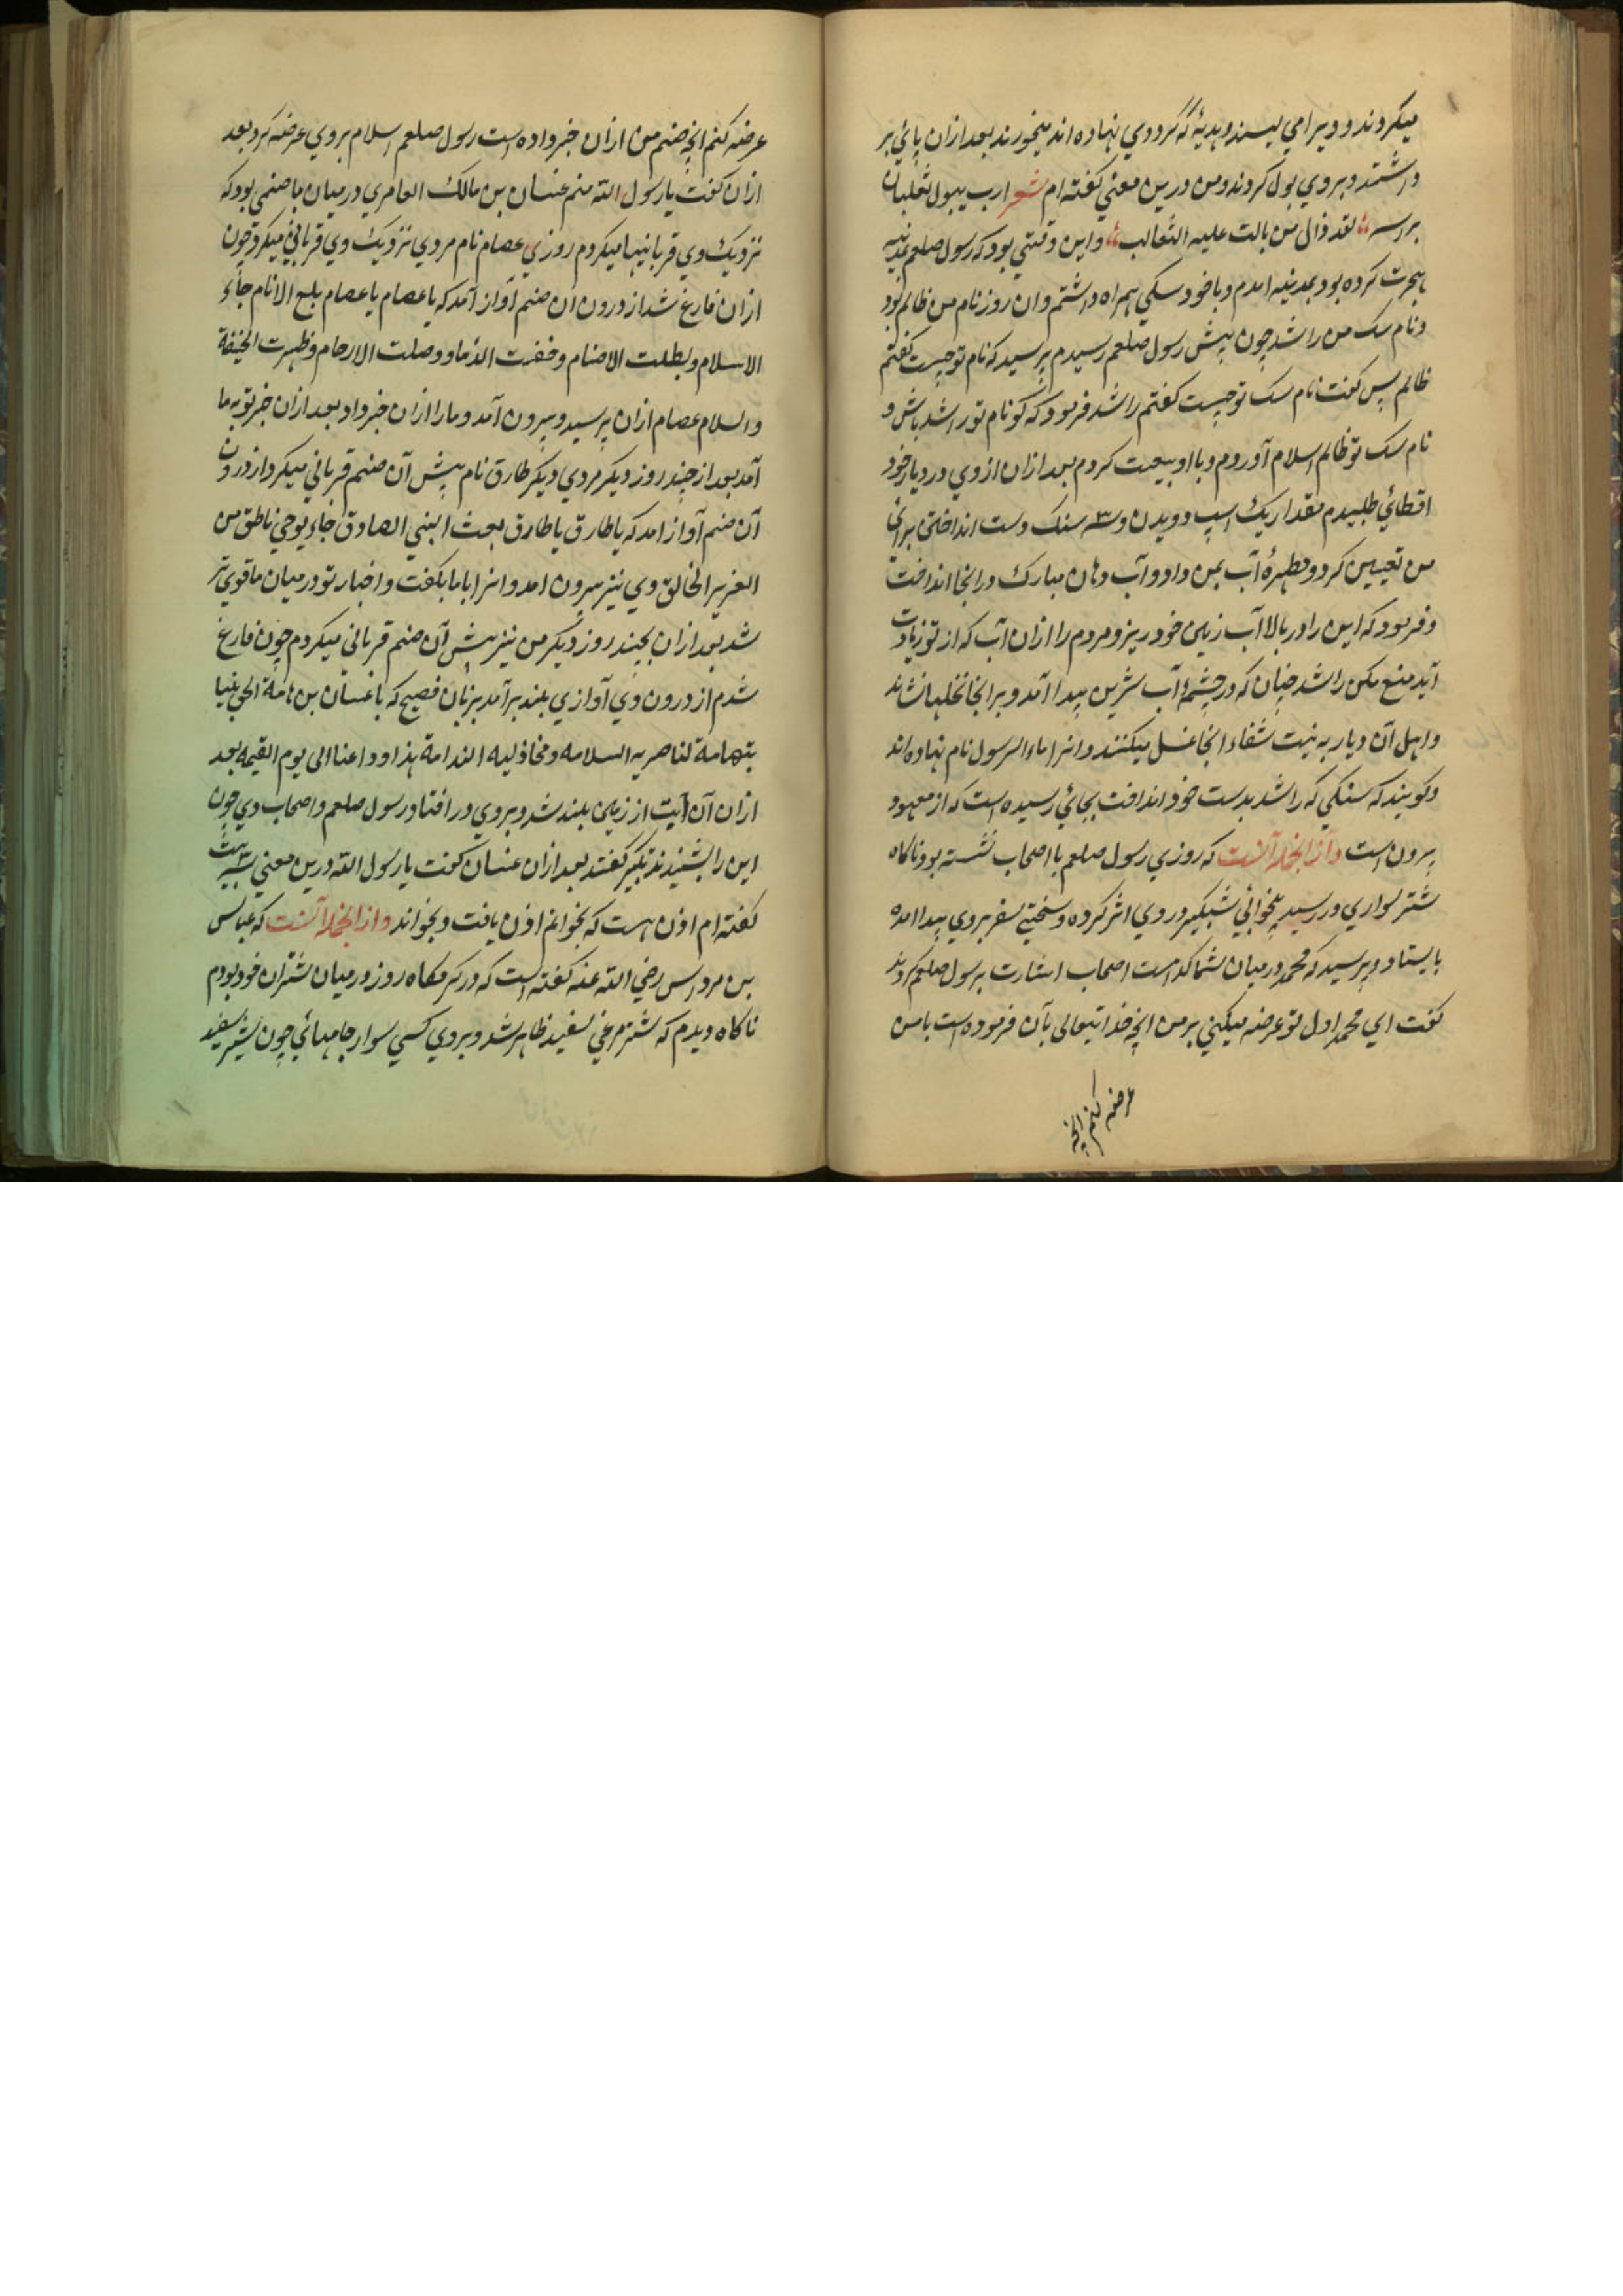 میکردند و ویرا می لیسند و هدیهٔ که گرد وي نهاده اند میخورند بعد ازان پائي بر
داشتند و بروي بول کردند و من درین معني گفته ام شعر ارب یبول ثعلبان
براسه لقد ذال من بالت علیه الثعالب و این وقتي بود که رسول صلعم بمدینه
هجرت کرده بود بمدینه امدم و با خود سکي همراه داشتم و ان روز نام من ظالم بود
و نام سک من راشد چون پیش رسول صلعم رسیدم پرسید که نام تو چیست گفتم
ظالم پس گفت نام سک تو چیست گفتم راشد فرمود که گو نام تو راشد باش و
نام سک تو ظالم اسلام آوردم و با او بیعت کردم بعد ازان از وي در دیار خود
اقطائي طلبیدم مقدار یک اسپ دویدن و سه سنک دست انداختن براي
من تعیین کرد و مطهرهٔ آب بمن داد و آب دهان مبارک در انجا انداخت
و فرمود که این را در بالا آب زمین خود ریز و مردم را ازان آب که از تو زیادت
آید منع مکن راشد چنان کرد چشمهٔ آب شیرین پیدا آمد و بر انجا نخلها نشاند
و اهل آن دیار به نیت شفاء انجا غسل میکنند و انرا ماء الرسول نام نهاده اند
و کویند که سنکي که راشد بدست خود انداخت بجائي رسیده است که از معهود
بیرون است و از انجمله آنست که روزي رسول صلعم با اصحاب نشسته بود ناکاه
شتر سواري در رسید بیخوابي شبکیر در وي اثر کرده و سختي سفر بروي پیدا امده
بایستاد و پرسید که محمد در میان شما کدامست اصحاب اشارت برسول صلعم کردند
گفت اي محمد اول تو عرضه میکني بر من انچه خدایتعالی بآن فرموده است یا من
عرضه کنم انچه
عرضه کنم انچه صنم من ازان خبر داده است رسول صلعم اسلام بروي عرضه کرد بعد
ازان گفت یا رسول الله منم غسان بن مالک العامري در میان ما صنمي بود که
نزدیک وي قربانیها میکردم روزي عصام نام مردي نزدیک وي قرباني میکرد چون
ازان فارغ شد از درون ان صنم آواز آمد که یا عصام یا عصام بلغ الانام جاء
الاسلام و بطلت الاصنام و حفنت الدماء و وصلت الارحام و ظهرت الحنیفة
والسلام عصام ازان بترسید و بیرون آمد و ما را ازان خبر داد بعد ازان خبر تو به ما
آمد بعد از چند روز دیکر مردي دیکر طارق نام پیش آن صنم قرباني میکرد از درون
آن صنم آواز امد که یا طارق یا طارق بعث النبي الصادق جاء بوحي ناطق من
العزیز الخالق وي نیز بیرون امد و انرا با ما بکفت و اخبار تو در میان ما قوي تر
شد بعد ازان بچند روز دیکر من نیز پیش آن صنم قرباني میکردم چون فارغ
شدم از درون وي آوازي بلند برآمد بزبان فصیح که یا غسان بن هامة الحي نبیا
بتهامة لناصریه السلامه و مخاذلیه الندامة هذا وداعنا الی یوم القیمه بعد
ازان آن آیت از زمین بلند شد و بروي در افتاد رسول صلعم و اصحاب وي چون
این را بشنیدند تکبیر گفتند بعد ازان غسان گفت یا رسول الله درین معني سه بیت
گفته ام اذن هست که بخوانم اذن یافت و بخواند و از انجمله آنست که عباس
بن مرداس رضي الله عنه گفته است که در گرمکاه روز در میان شتران خود بودم
ناکاه دیدم که شترمرغي سفید ظاهر شد و بروي کسي سوار جامهائي چون شیر سفید